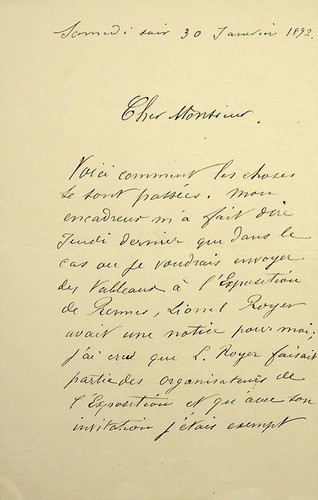 Samedi soir 30 Janvier 1892.
Cher Monsieur.
Voici comment les choses
se sont passées. Mon
encadreur m'a fait dire
Jeudi dernier que dans le
cas ou je voudrais envoyer
des tableaux à l'Exposition
de Rennes, Lionel Royer
avait une notice pour moi;
j'ai cru que L. Royer faisait
partie des organisateurs de
l'Exposition et qu'avec son
invitation j'étais exempt